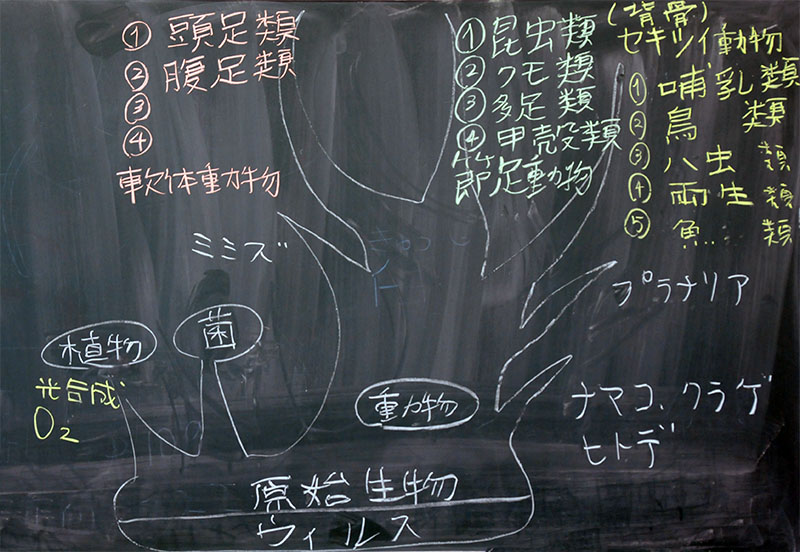 ① 頭足類
② 腹足類
③
④
軟体動物
① 昆虫類
② クモ類
③ 多足類
④ 甲殻類
節足動物
(背骨)
セキツイ動物
① 哺乳類
② 鳥 類
③ ハ虫 類
④ 両生 類
⑤ 魚.. 類
ミミズ
プラナリア
植物
菌
光合成
O₂
動物
ナマコ、クラゲ
ヒトデ
原始生物
ウィルス